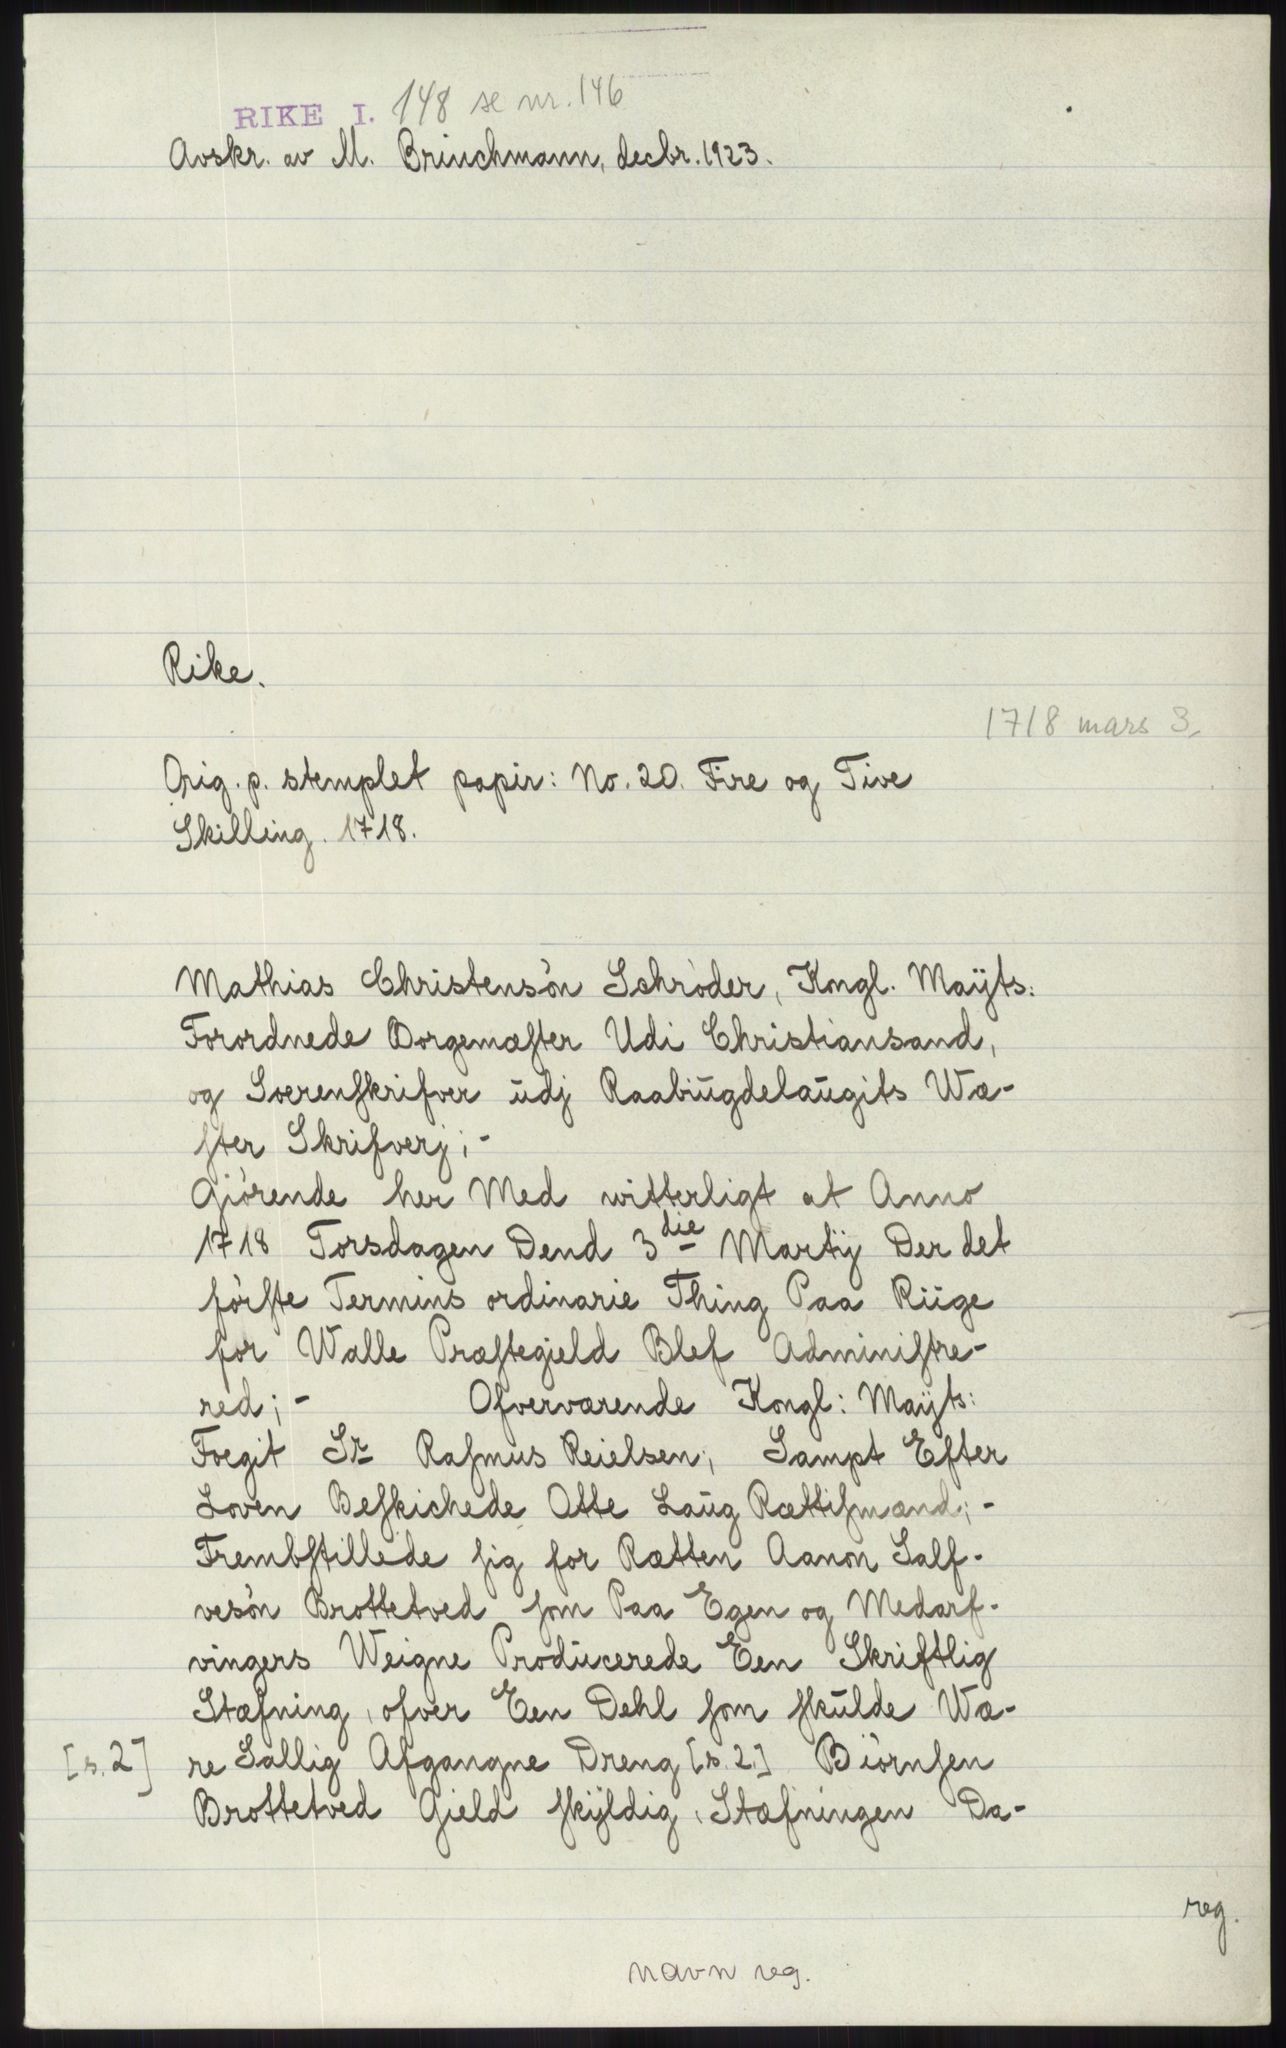 RIKE I. 148 se nr. 146
Avskr. av M. Brinchmann, decbr. 1923.
Rike.
1718 mars 3.
Orig. p. stemplet papir: No. 20. Fire og Tive
Skilling. 1718.
Mathias Christensön Schröder, Kongl. Maÿts:
Forordnede Borgemæster Udi Christiansand,
og Sorenskrifver udj Raabiugdelaugits Wæ-
ster Skrifverj; -
Gjörende her Med witterligt at Anno
1718 Torsdagen Dend 3die Martij Der det
förste Termins ordinarie Thing Paa Riige
for Walle Præstegield Blef Administre-
red; - Ofverværende Kongl: Maÿts:
Foegit Sr Rasmus Reielsen; Sampt Efter
Loven Beskichede Otte Laug Rættismænd; -
Frembstillede sig for Rætten Aanon Salf-
vesön Brottetved som Paa Egen og Medarf-
vingers Weigne Producerede Een Skriftlig
Stæfning, ofver Een Dehl som skulde Wæ-
[s. 2] re Sallig Afgangne Dreng [s. 2.] Biörnsen
Brottetved Gield skÿldig, Stæfningen Da-
reg.
navn reg.